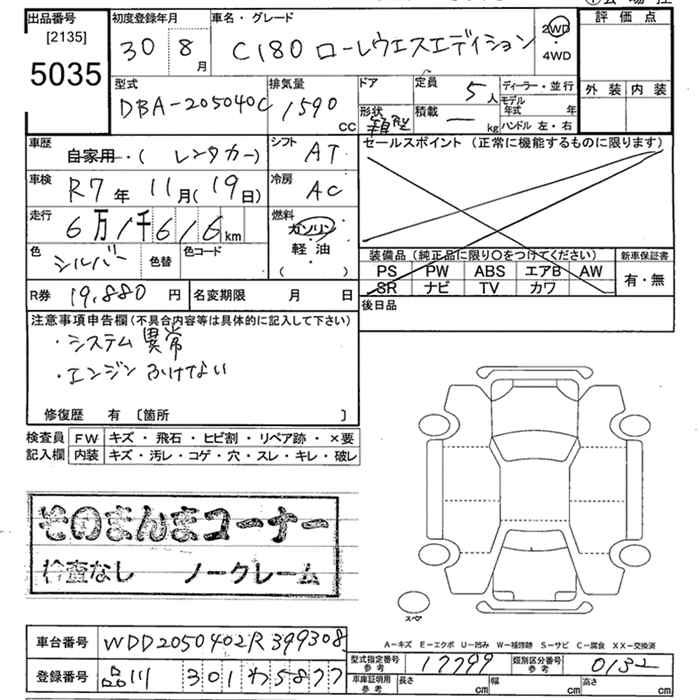 出品番号 初度登録年月 車名・グレード 評価点
[2135]
5035
30 8月 C180 ローレウエスエディション 2WD・4WD
型式 排気量 ドア 定員 ディーラー・並行 外装 内装
DBA-205040C 1590cc 5人 モデル年式 年
形状 積載 ー kg ハンドル 左・右
車歴 自家用・( レンタカー ) シフト AT セールスポイント (正常に機能するものに限ります)
車検 R7年 11月 (19日) 冷房 AC
走行 6万1千616km 燃料 ガソリン・軽油・( )
色 シルバー 色替 色コード
装備品 (純正品に限り○をつけてください) 新車保証書
PS PW ABS エアB AW 有・無
SR ナビ TV カワ
R券 19,880円 名変期限 月 日 後日品
注意事項申告欄 (不具合内容等は具体的に記入して下さい)
・システム異常
・エンジン ふけない
修復歴 有 〔箇所 〕
検査員 FW キズ・飛石・ヒビ割・リペア跡・×要
記入欄 内装 キズ・汚レ・コゲ・穴・スレ・キレ・破レ
そのまんまコーナー
検査なし ノークレーム
スペア
A-キズ E-エクボ U-凹み W-補修跡 S-サビ C-腐食 XX-交換済
車台番号 WDD2050402R399308
型式指定番号 参考 17799 類別区分番号 参考 0132
登録番号 品川 301 わ 5877
車庫証明用 参考 長さ cm 幅 cm 高さ cm